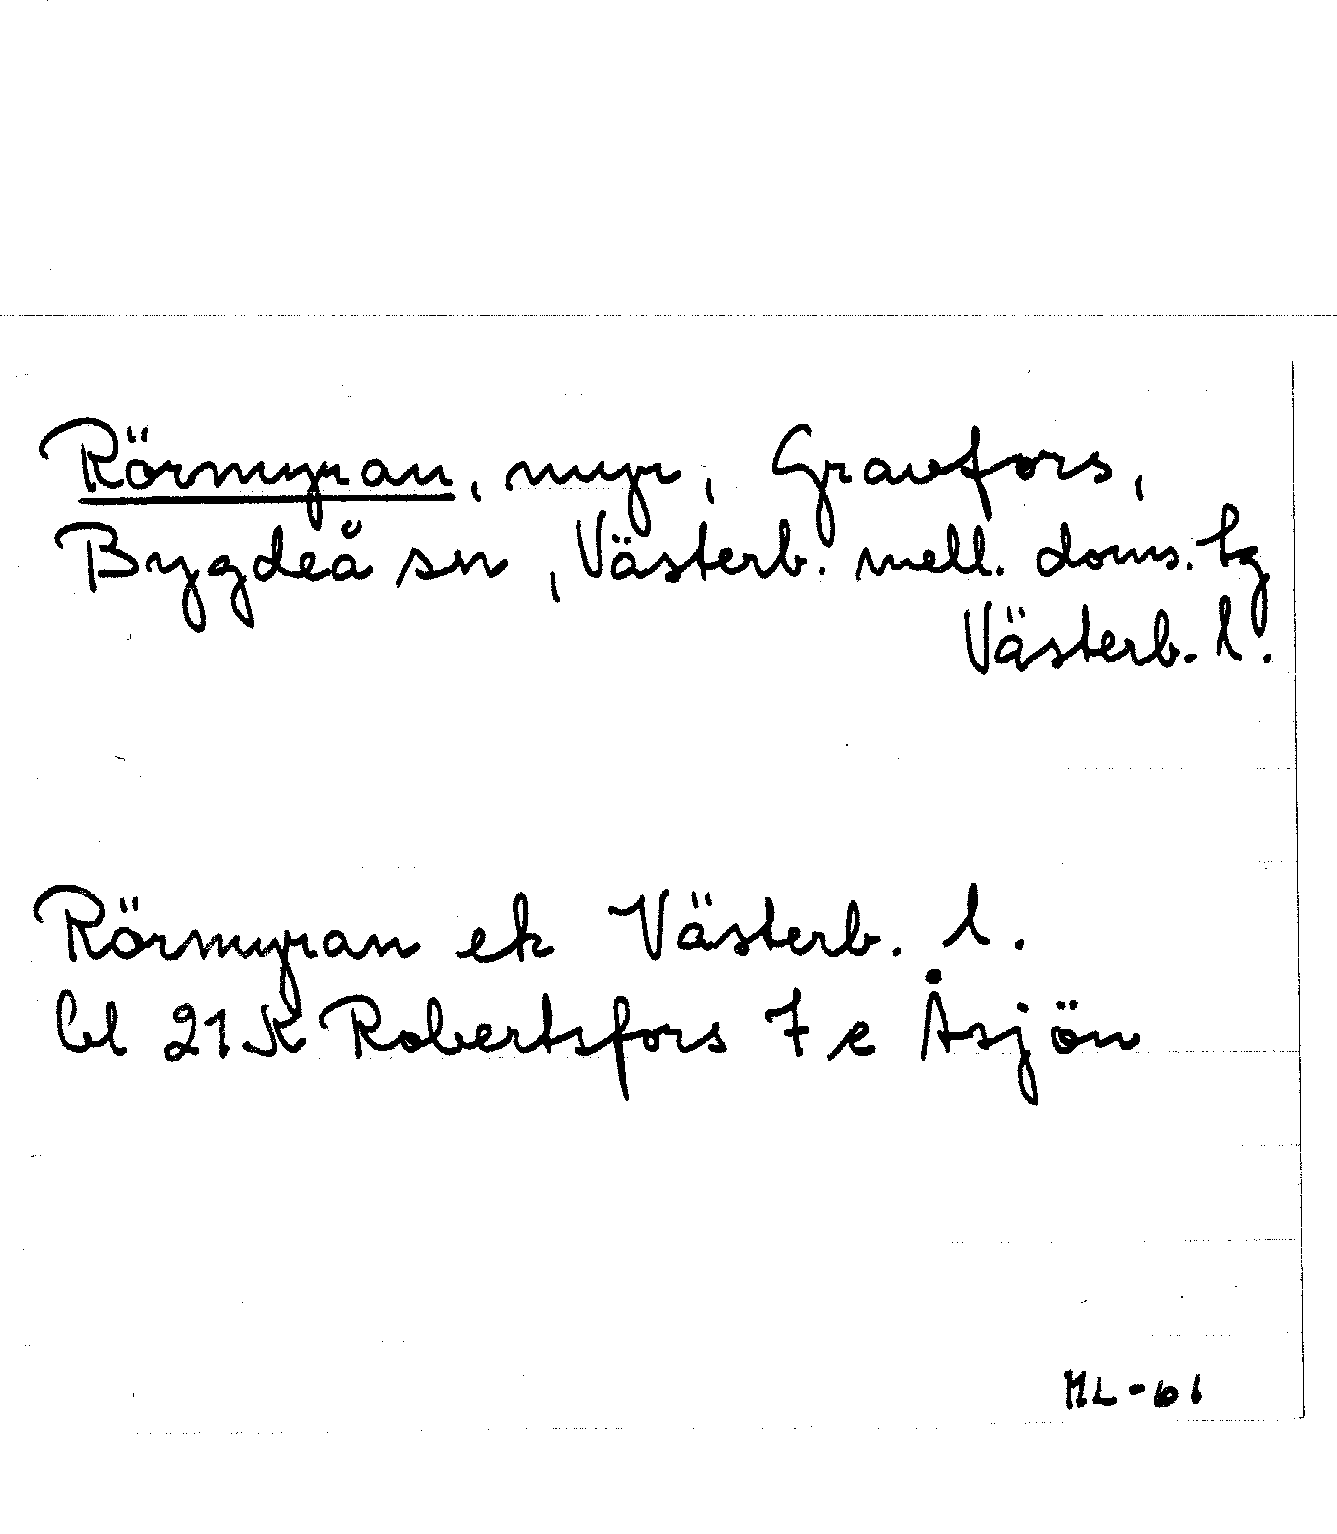 Rörmyran, myr, Gravfors,
Bygdeå sn, Västerb. mell. doms. tg
Västerb. l.
Rörmyran ek Västerb. l.
bl 21K Robertsfors 7 e Åsjön
ML-61